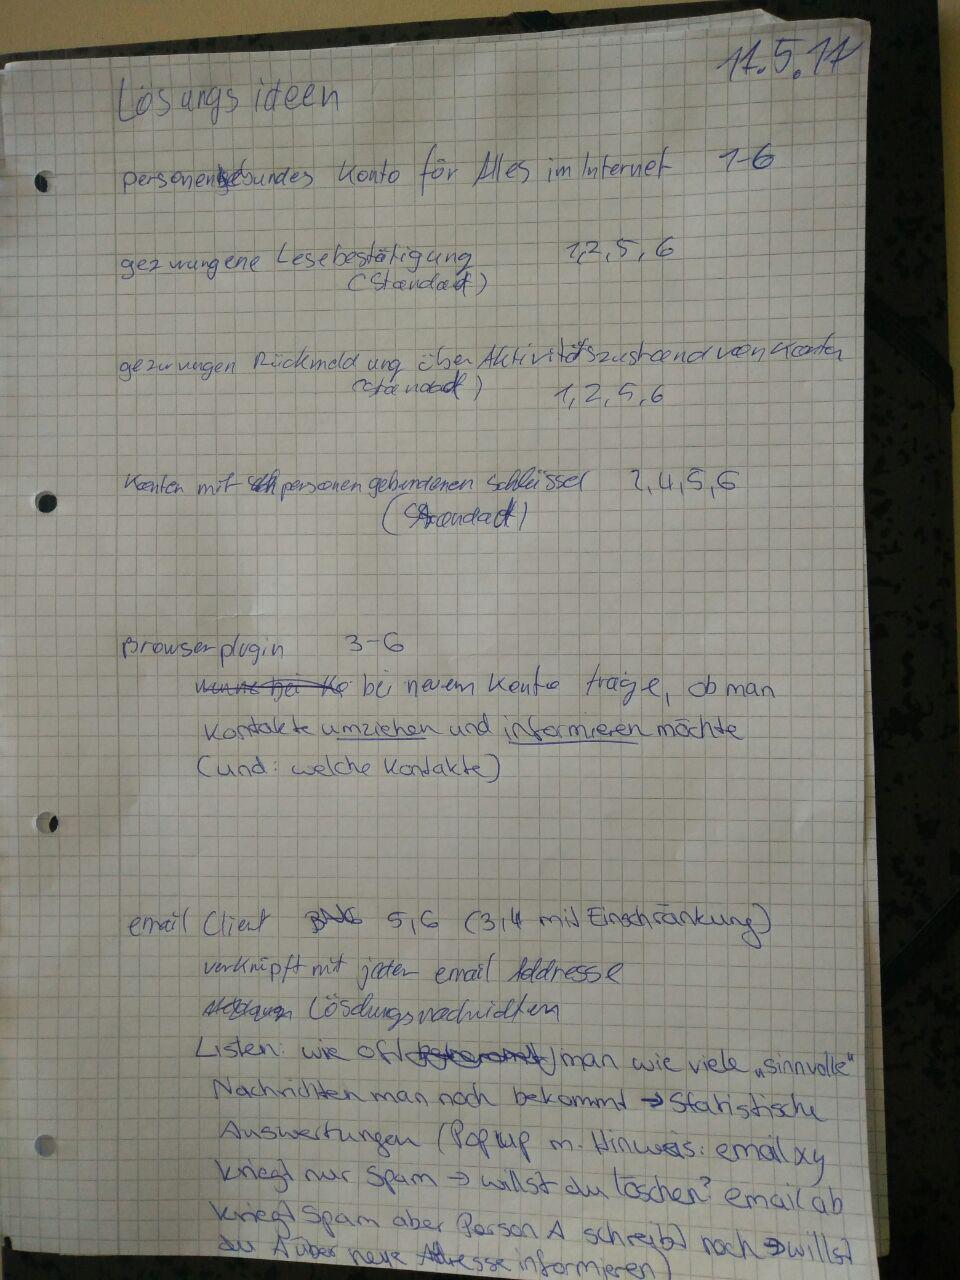 17.5.17
Lösungsideen
personengebundes Konto für Alles im Internet 1-6
gezwungene Lesebestätigung 1,2,5,6
(Standard)
gezwungen Rückmeldung über Aktivitätszustand von Konten
(Standard) 1,2,5,6
Konten mit personengebundenen Schlüssel 2,4,5,6
(Standard)
Browserplugin 3-6
bei neuem Konto frage, ob man
Kontakte umziehen und informieren möchte
(und: welche Kontakte)
email Client 5,6 (3,4 mit Einschränkung)
verknüpft mit jeder email Addresse
Löschungsnachrichten
Listen: wie oft man wie viele „sinnvolle"
Nachrichten man noch bekommt → Statistische
Auswertungen (Pop up m. Hinweis: email xy
kriegt nur Spam → willst du löschen? email ab
kriegt Spam aber Person A schreibt noch → willst
du A über neue Adresse informieren)